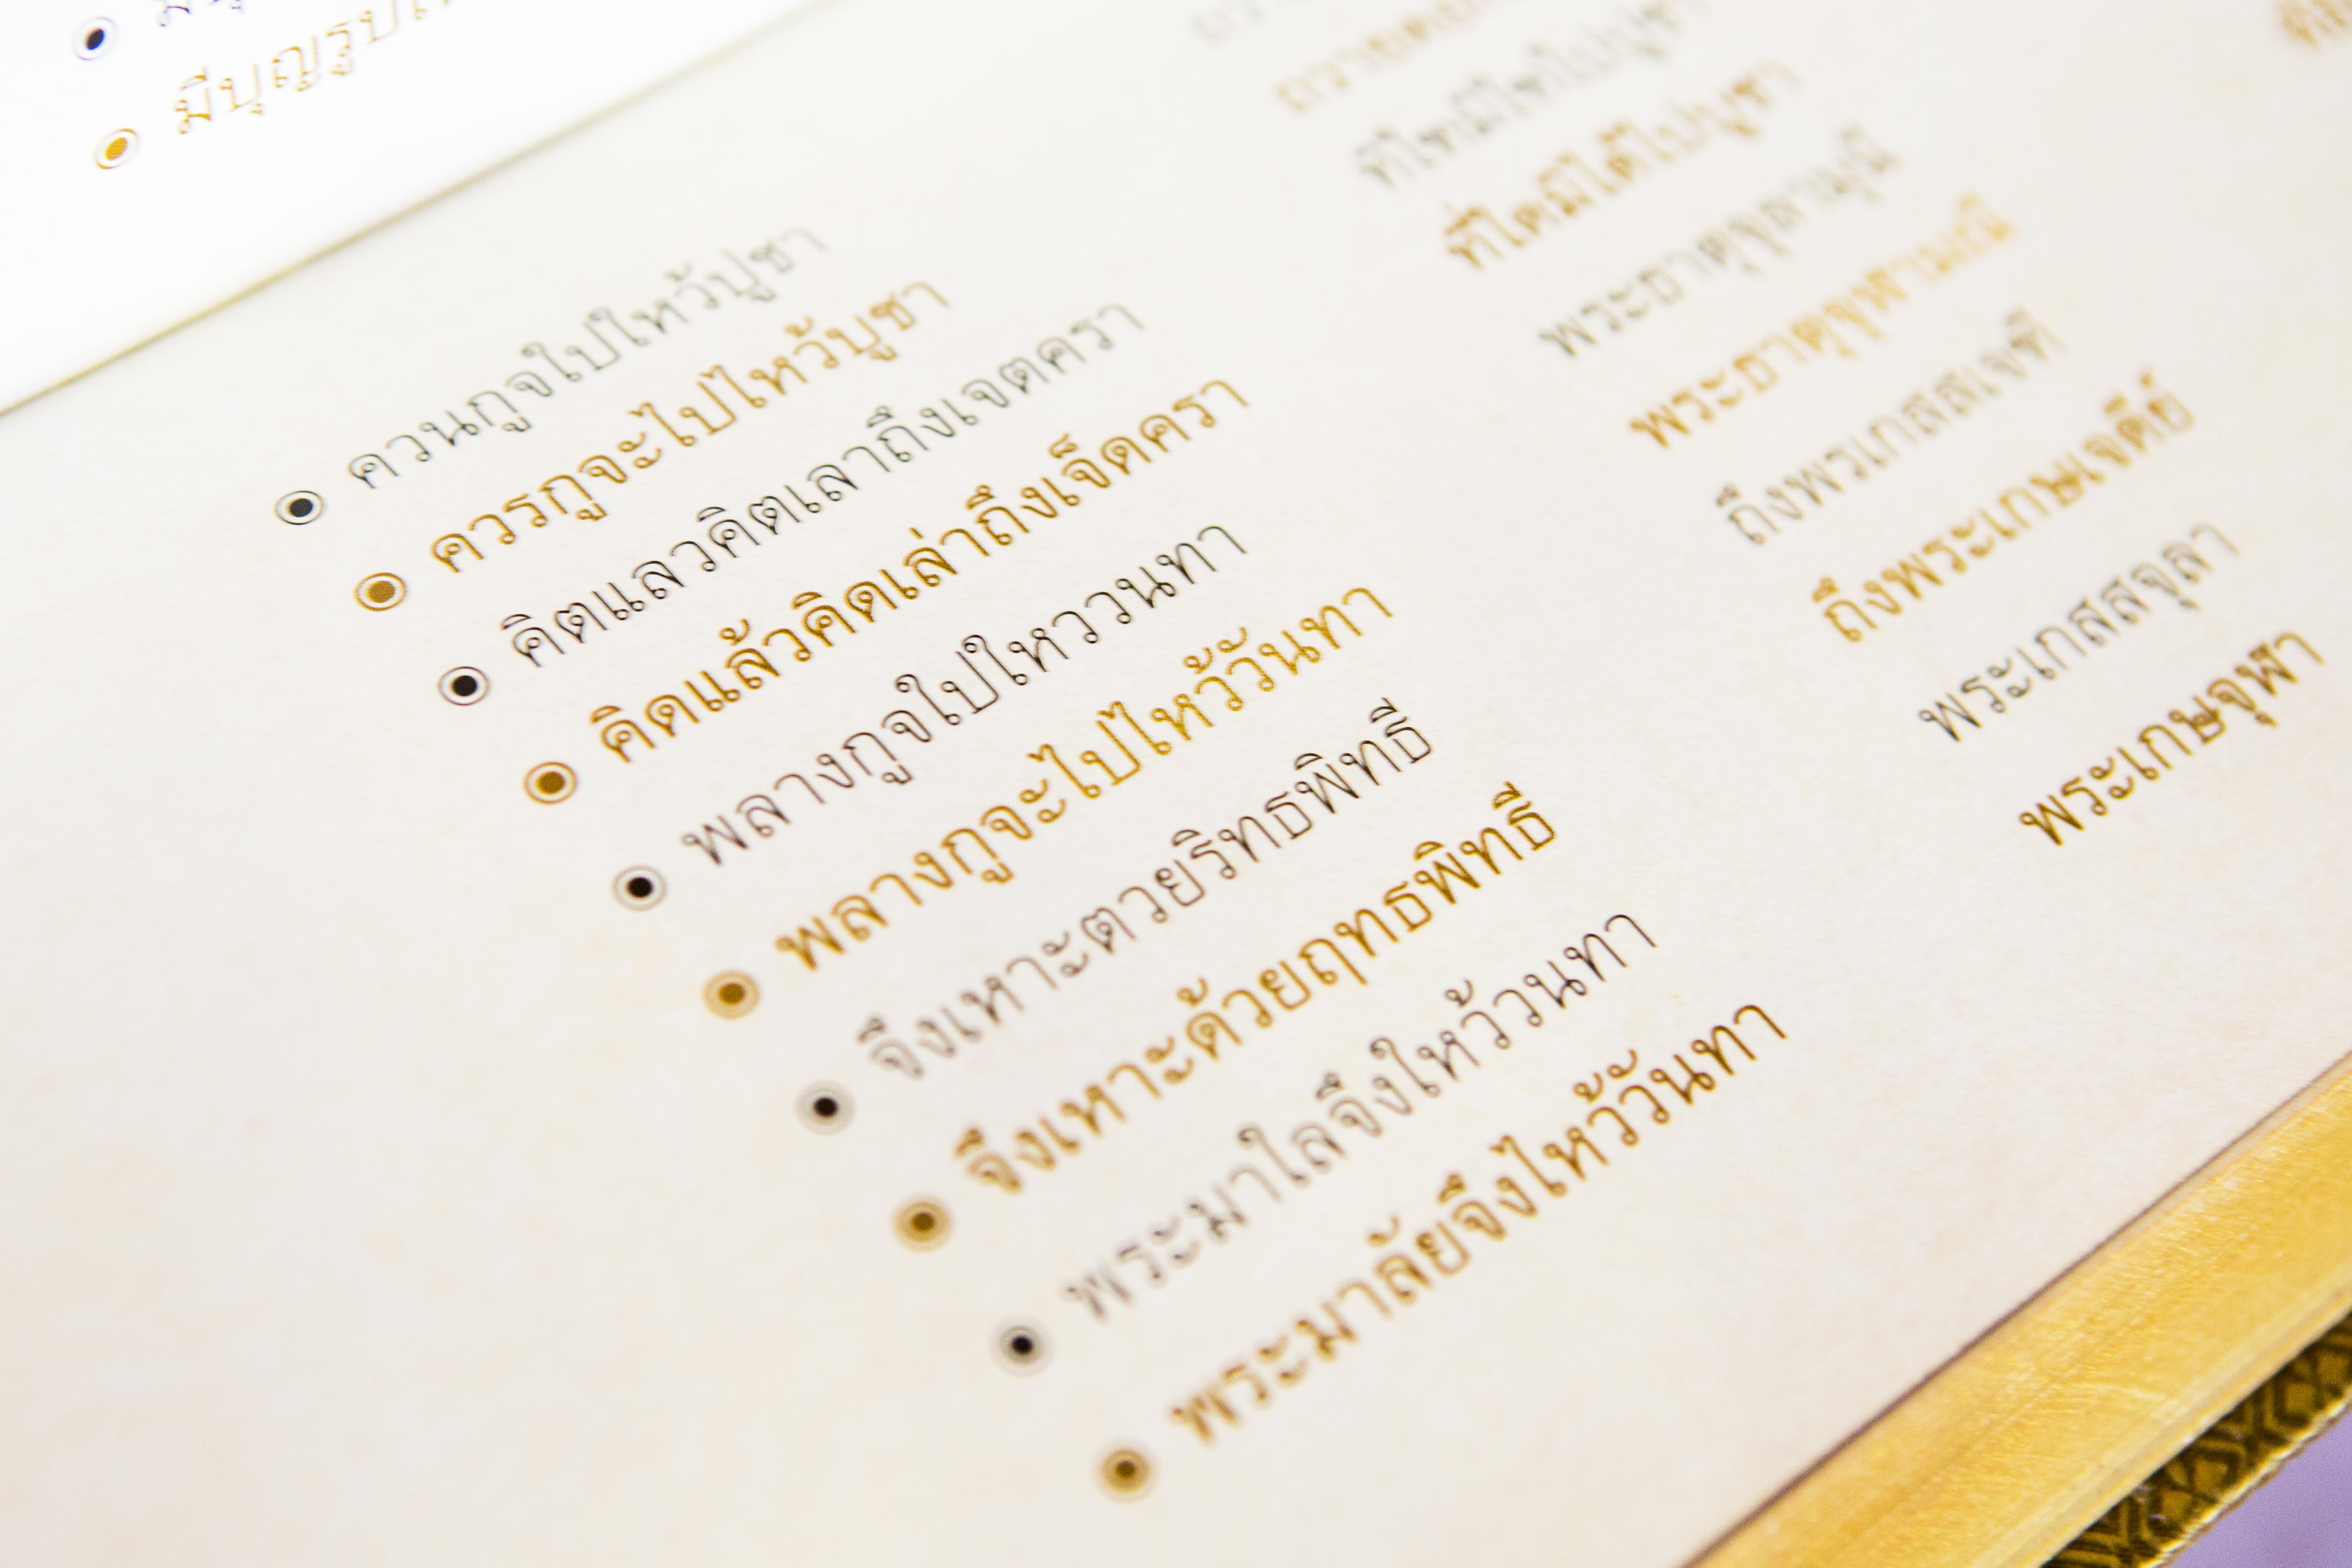 มีบุญรูป
ควนกูจใปใหว้ปูชา
ควรกูจะไปไหว้บูชา
คิตแลวคิตเลาถึงเจตครา
คิดแล้วคิดเล่าถึงเจ็ดครา
พลางกูจใปใหววนทา
พลางกูจะไปไหว้วันทา
จึงเหาะตวยริทธพิทธี
จึงเหาะด้วยฤทธพิทธี
พระมาใลจึงใหว้วนทา
พระมาลัยจึงไหว้วันทา
ที่ใดมิได้ไปบูชา
พระธาตุจุลามุนี
พระธาตุจุฬามณี
ถึงพรเกสสเจที
ถึงพระเกษเจดีย์
พระเกสสจุลา
พระเกษจุฬา